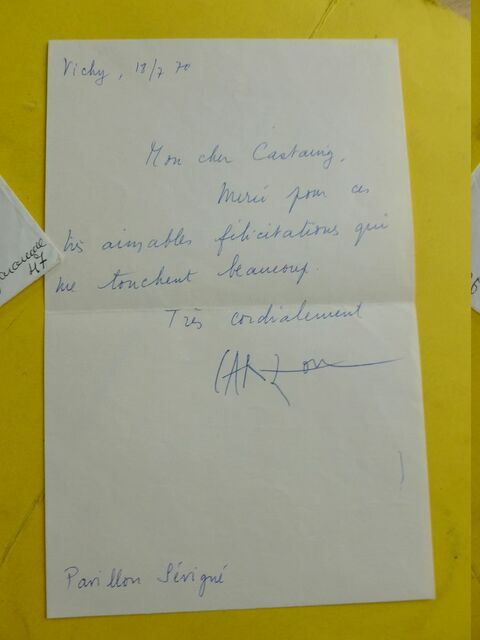 Vichy, 18/7 70
Mon cher Castaing,
Merci pour ces
très aimables félicitations qui
me touchent beaucoup.
Très cordialement
CARZOU
Pavillon Sévigné
47